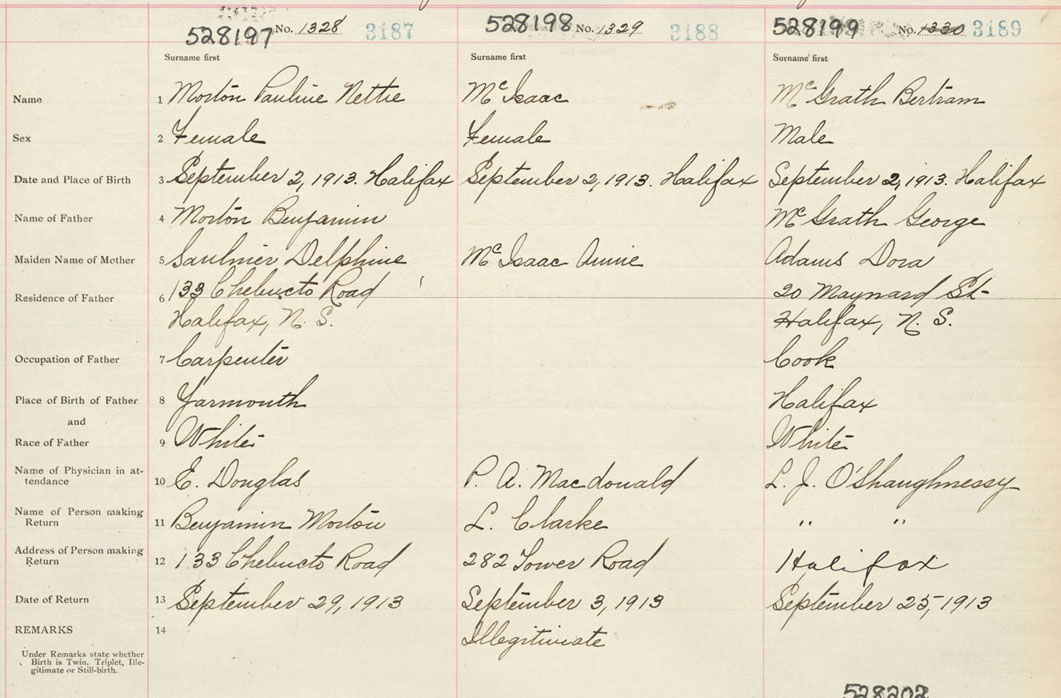 528197 No. 1328 3187
528198 No. 1329 3188
528199 No. 1330 3189
Surname first Surname first Surname first
Name 1 Morton Pauline Nettie McIsaac McGrath Bertram
Sex 2 Female Female Male
Date and Place of Birth 3 September 2, 1913. Halifax September 2, 1913. Halifax September 2, 1913. Halifax
Name of Father 4 Morton Benjamin McGrath George
Maiden Name of Mother 5 Saulnier Delphine McIsaac Annie Adams Dora
Residence of Father 6 133 Chebucto Road 20 Maynard St
Halifax, N. S. Halifax, N. S.
Occupation of Father 7 Carpenter Cook
Place of Birth of Father 8 Yarmouth Halifax
and
Race of Father 9 White White
Name of Physician in at-
tendance 10 E. Douglas P. A. Macdonald L. J. O'Shaughnessy
Name of Person making
Return 11 Benjamin Morton L. Clarke " "
Address of Person making
Return 12 133 Chebucto Road 282 Tower Road Halifax
Date of Return 13 September 29, 1913 September 3, 1913 September 25, 1913
REMARKS 14 Illegitimate
Under Remarks state whether
Birth is Twin, Triplet, Ille-
gitimate or Still-birth.
528202